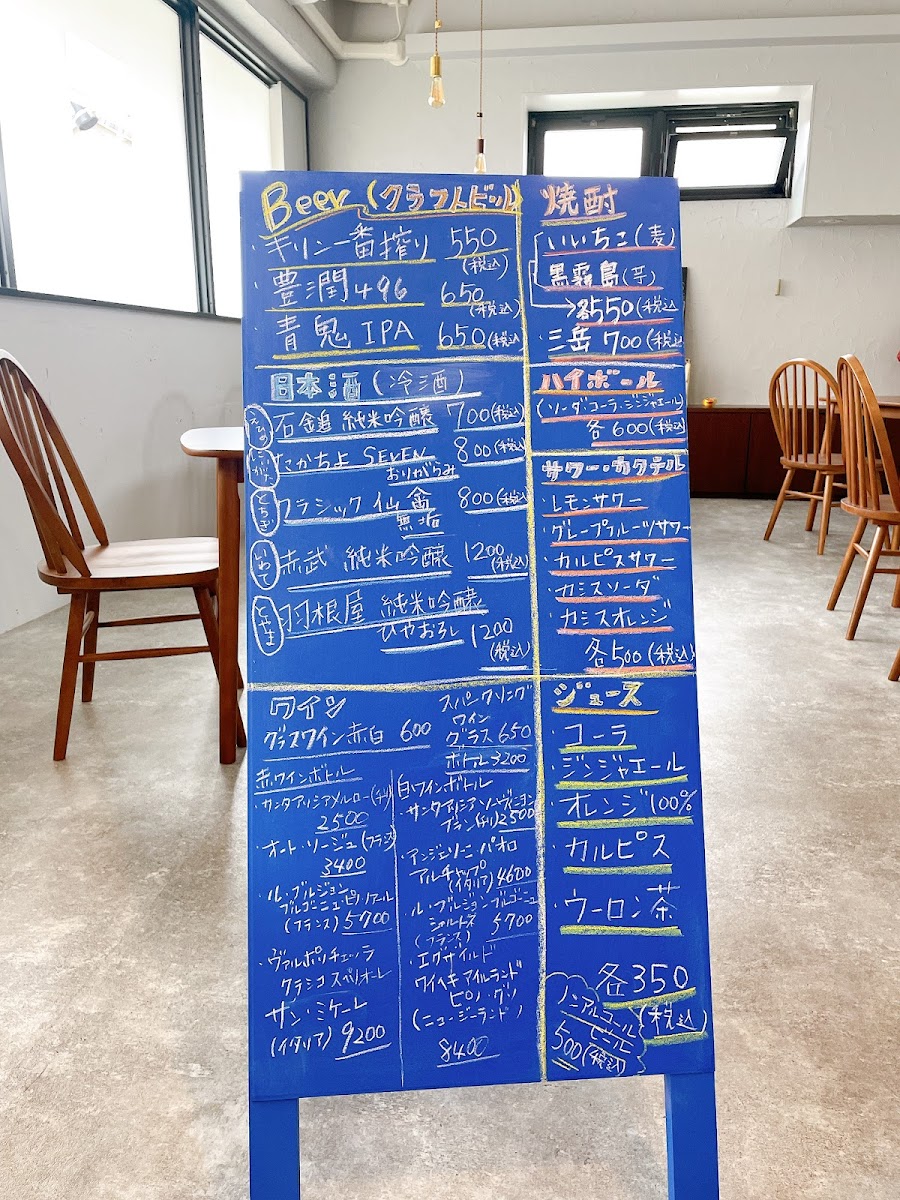 Beer (クラフトビール)
・キリン一番搾り 550
(税込)
豊潤496 650
(税込)
青鬼 IPA 650(税込)
日本酒(冷酒)
えひめ 石鎚 純米吟醸 700(税込)
にいがた たかちよ SEVEN 800(税込)
おりがらみ
とちぎ クラシック仙禽 800(税込)
無垢
いわて 赤武 純米吟醸 1200
(税込)
とやま 羽根屋 純米吟醸
ひやおろし 1200
(税込)
ワイン
グラスワイン赤白 600
スパークリング
ワイン
グラス 650
ボトル 3200
赤ワインボトル
サンタアリシアメルロー(チリ)
2500
オート・ソージュ(フランス)
3400
・ル・ブルジョン
ブルゴーニュピノノワール
(フランス) 5700
・ヴァルポリチェッラ
クラシコスペリオーレ
サン・ミケーレ
(イタリア) 9200
白ワインボトル
サンタアリシアソーヴィニヨン
ブラン(チリ)2500
・アンジェリーニ・パオロ
(イタリア)4600
ル・ブルジョンブルゴーニュ
シャルドネ 5700
(フランス)
・エグザイルド
ワイヘキアイランド
ピノ・グリ
(ニュージーランド)
8400
焼酎
いいちこ(麦)
黒霧島(芋)
→各550(税込)
三岳 700(税込)
ハイボール
(ソーダ・コーラ・ジンジャエール)
各600(税込)
サワー・カクテル
・レモンサワー
・グレープフルーツサワー
・カルピスサワー
・カシスソーダ
・カシスオレンジ
各500(税込)
ジュース
・コーラ
・ジンジャエール
・オレンジ100%
・カルピス
・ウーロン茶
各350
(税込)
ノンアルコール
ビール
500(税込)